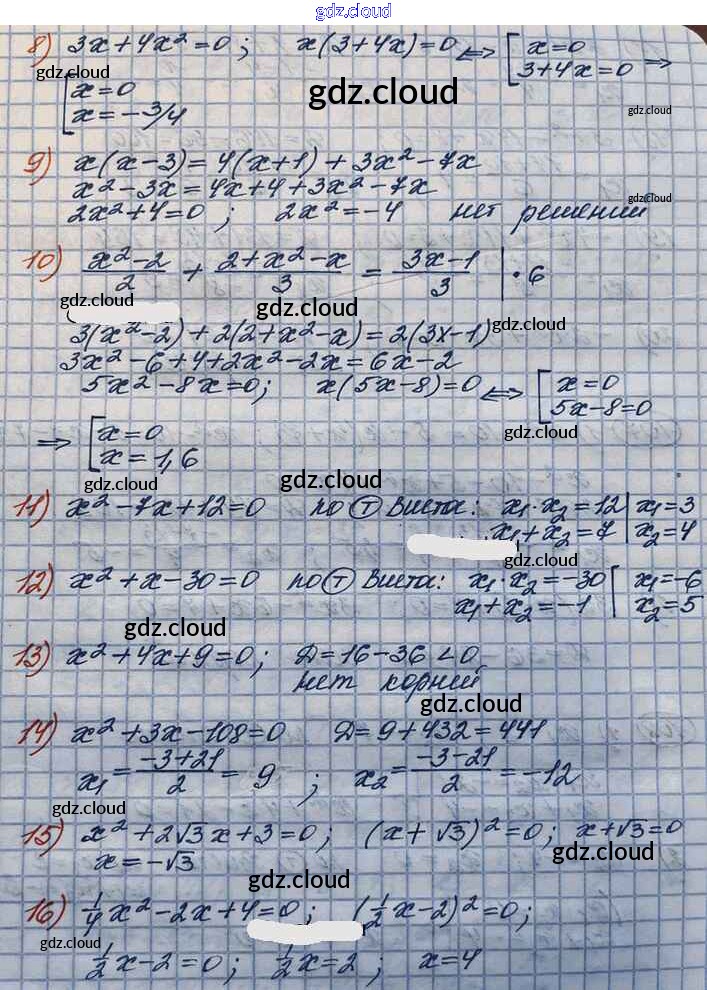 gdz.cloud
8) 3x+4x²=0; x(3+4x)=0 ⟺ [x=0
3+4x=0 ⟹
gdz.cloud
[x=0
x=-3/4
gdz.cloud
gdz.cloud
9) x(x-3)=4(x+1)+3x²-7x
x²-3x=4x+4+3x²-7x
gdz.cloud
2x²+4=0; 2x²=-4 нет решений
10) \frac{x²-2}{2} + \frac{2+x²-x}{3} = \frac{3x-1}{3} | ·6
gdz.cloud
gdz.cloud
3(x²-2)+2(2+x²-x)=2(3x-1)
gdz.cloud
3x²-6+4+2x²-2x=6x-2
5x²-8x=0; x(5x-8)=0 ⟺ [x=0
5x-8=0
gdz.cloud
⟹ [x=0
x=1,6
gdz.cloud
gdz.cloud
11) x²-7x+12=0 по Ⓣ Виета: x₁·x₂=12 | x₁=3
x₁+x₂=7 | x₂=4
gdz.cloud
12) x²+x-30=0 по Ⓣ Виета: x₁·x₂=-30 [x₁=-6
x₁+x₂=-1 x₂=5
gdz.cloud
13) x²+4x+9=0; D=16-36<0
нет корней
gdz.cloud
14) x²+3x-108=0 D=9+432=441
x₁=\frac{-3+21}{2}=9; x₂=\frac{-3-21}{2}=-12
gdz.cloud
15) x²+2√3x+3=0; (x+√3)²=0; x+√3=0
gdz.cloud
x=-√3
gdz.cloud
16) \frac{1}{4}x²-2x+4=0; (\frac{1}{2}x-2)²=0;
gdz.cloud
\frac{1}{2}x-2=0; \frac{1}{2}x=2; x=4
gdz.cloud